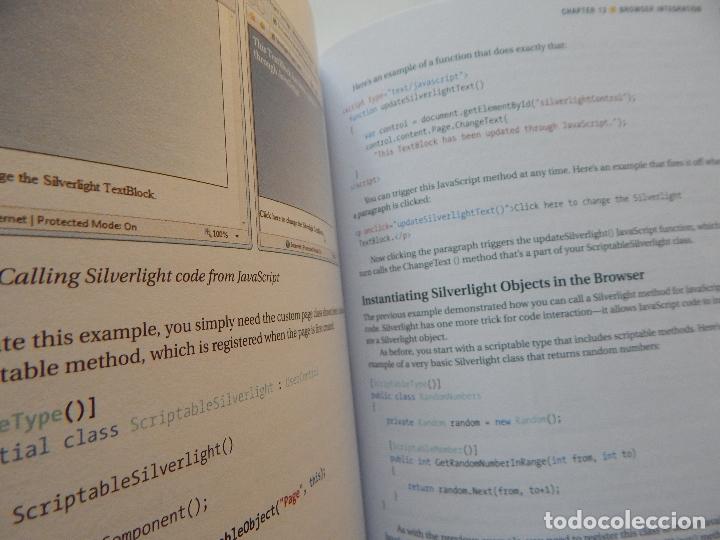 This TextBlock
through
ge the Silverlight TextBlock.
ernet | Protected Mode: On
100%
Click here to change the Silverlight TextBlock.
Calling Silverlight code from JavaScript
te this example, you simply need the custom page class
table method, which is registered when the page is first created.
eType()]
tial class ScriptableSilverlight : UserControl
ScriptableSilverlight()
Component();
bleObject("Page", this);
CHAPTER 13 ■ BROWSER INTEGRATION
Here's an example of a function that does exactly that:
<script type="text/javascript">
function updateSilverlightText()
{
var control = document.getElementById("silverlightControl");
control.content.Page.ChangeText(
"This TextBlock has been updated through JavaScript.");
}
</script>
You can trigger this JavaScript method at any time. Here's an example that fires it off whe
a paragraph is clicked:
<p onclick="updateSilverlightText()">Click here to change the Silverlight
TextBlock.</p>
Now clicking the paragraph triggers the updateSilverlight() JavaScript function, which
turn calls the ChangeText () method that's a part of your ScriptableSilverlight class.
Instantiating Silverlight Objects in the Browser
The previous example demonstrated how you can call a Silverlight method for JavaScrip
code. Silverlight has one more trick for code interaction—it allows JavaScript code to in
te a Silverlight object.
As before, you start with a scriptable type that includes scriptable methods. Here
example of a very basic Silverlight class that returns random numbers:
[ScriptableType()]
public class RandomNumbers
{
private Random random = new Random();
[ScriptableMember()]
public int GetRandomNumberInRange(int from, int to)
{
return random.Next(from, to+1);
}
}
As with the previous example, you need to register this class
todocoleccion.net